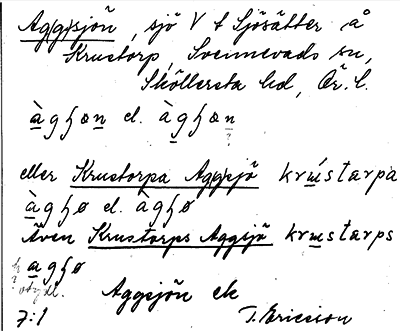 Aggsjön, sjö V t Sjösätter å
Krustorp, Svennevads sn,
Sköllersta hd, Ör. l.
àgʃøn el. àgʃøn
?
eller Krustorpa Aggsjö krústarpa
àgʃø el. àgʃø
Även Krustorps Aggsjö krustarps
agʃø
?
otydl.
Aggsjön ek
7:1 T. Ericsson